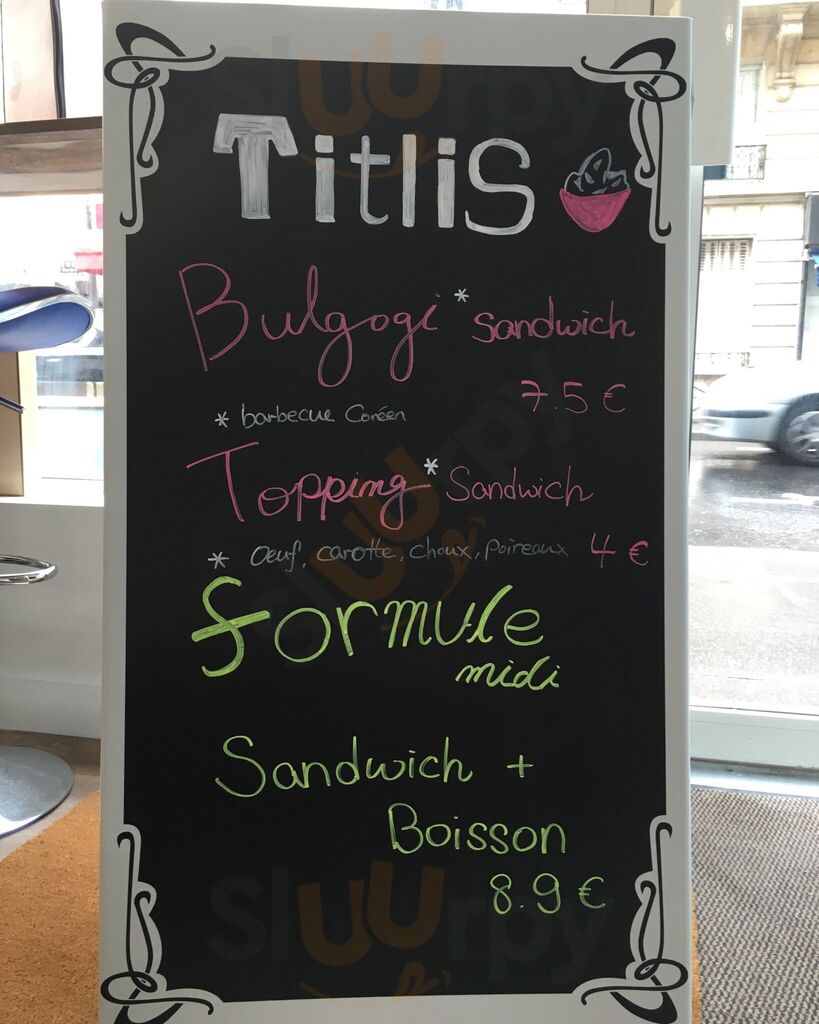 Titlis
Bulgogi * Sandwich
7.5 €
* barbecue Coréen
Topping * Sandwich
* Oeuf, carotte, choux, poireaux 4 €
formule
midi
Sandwich +
Boisson
8.9 €
Sluurpy
Sluurpy
Sluurpy
Sluurpy